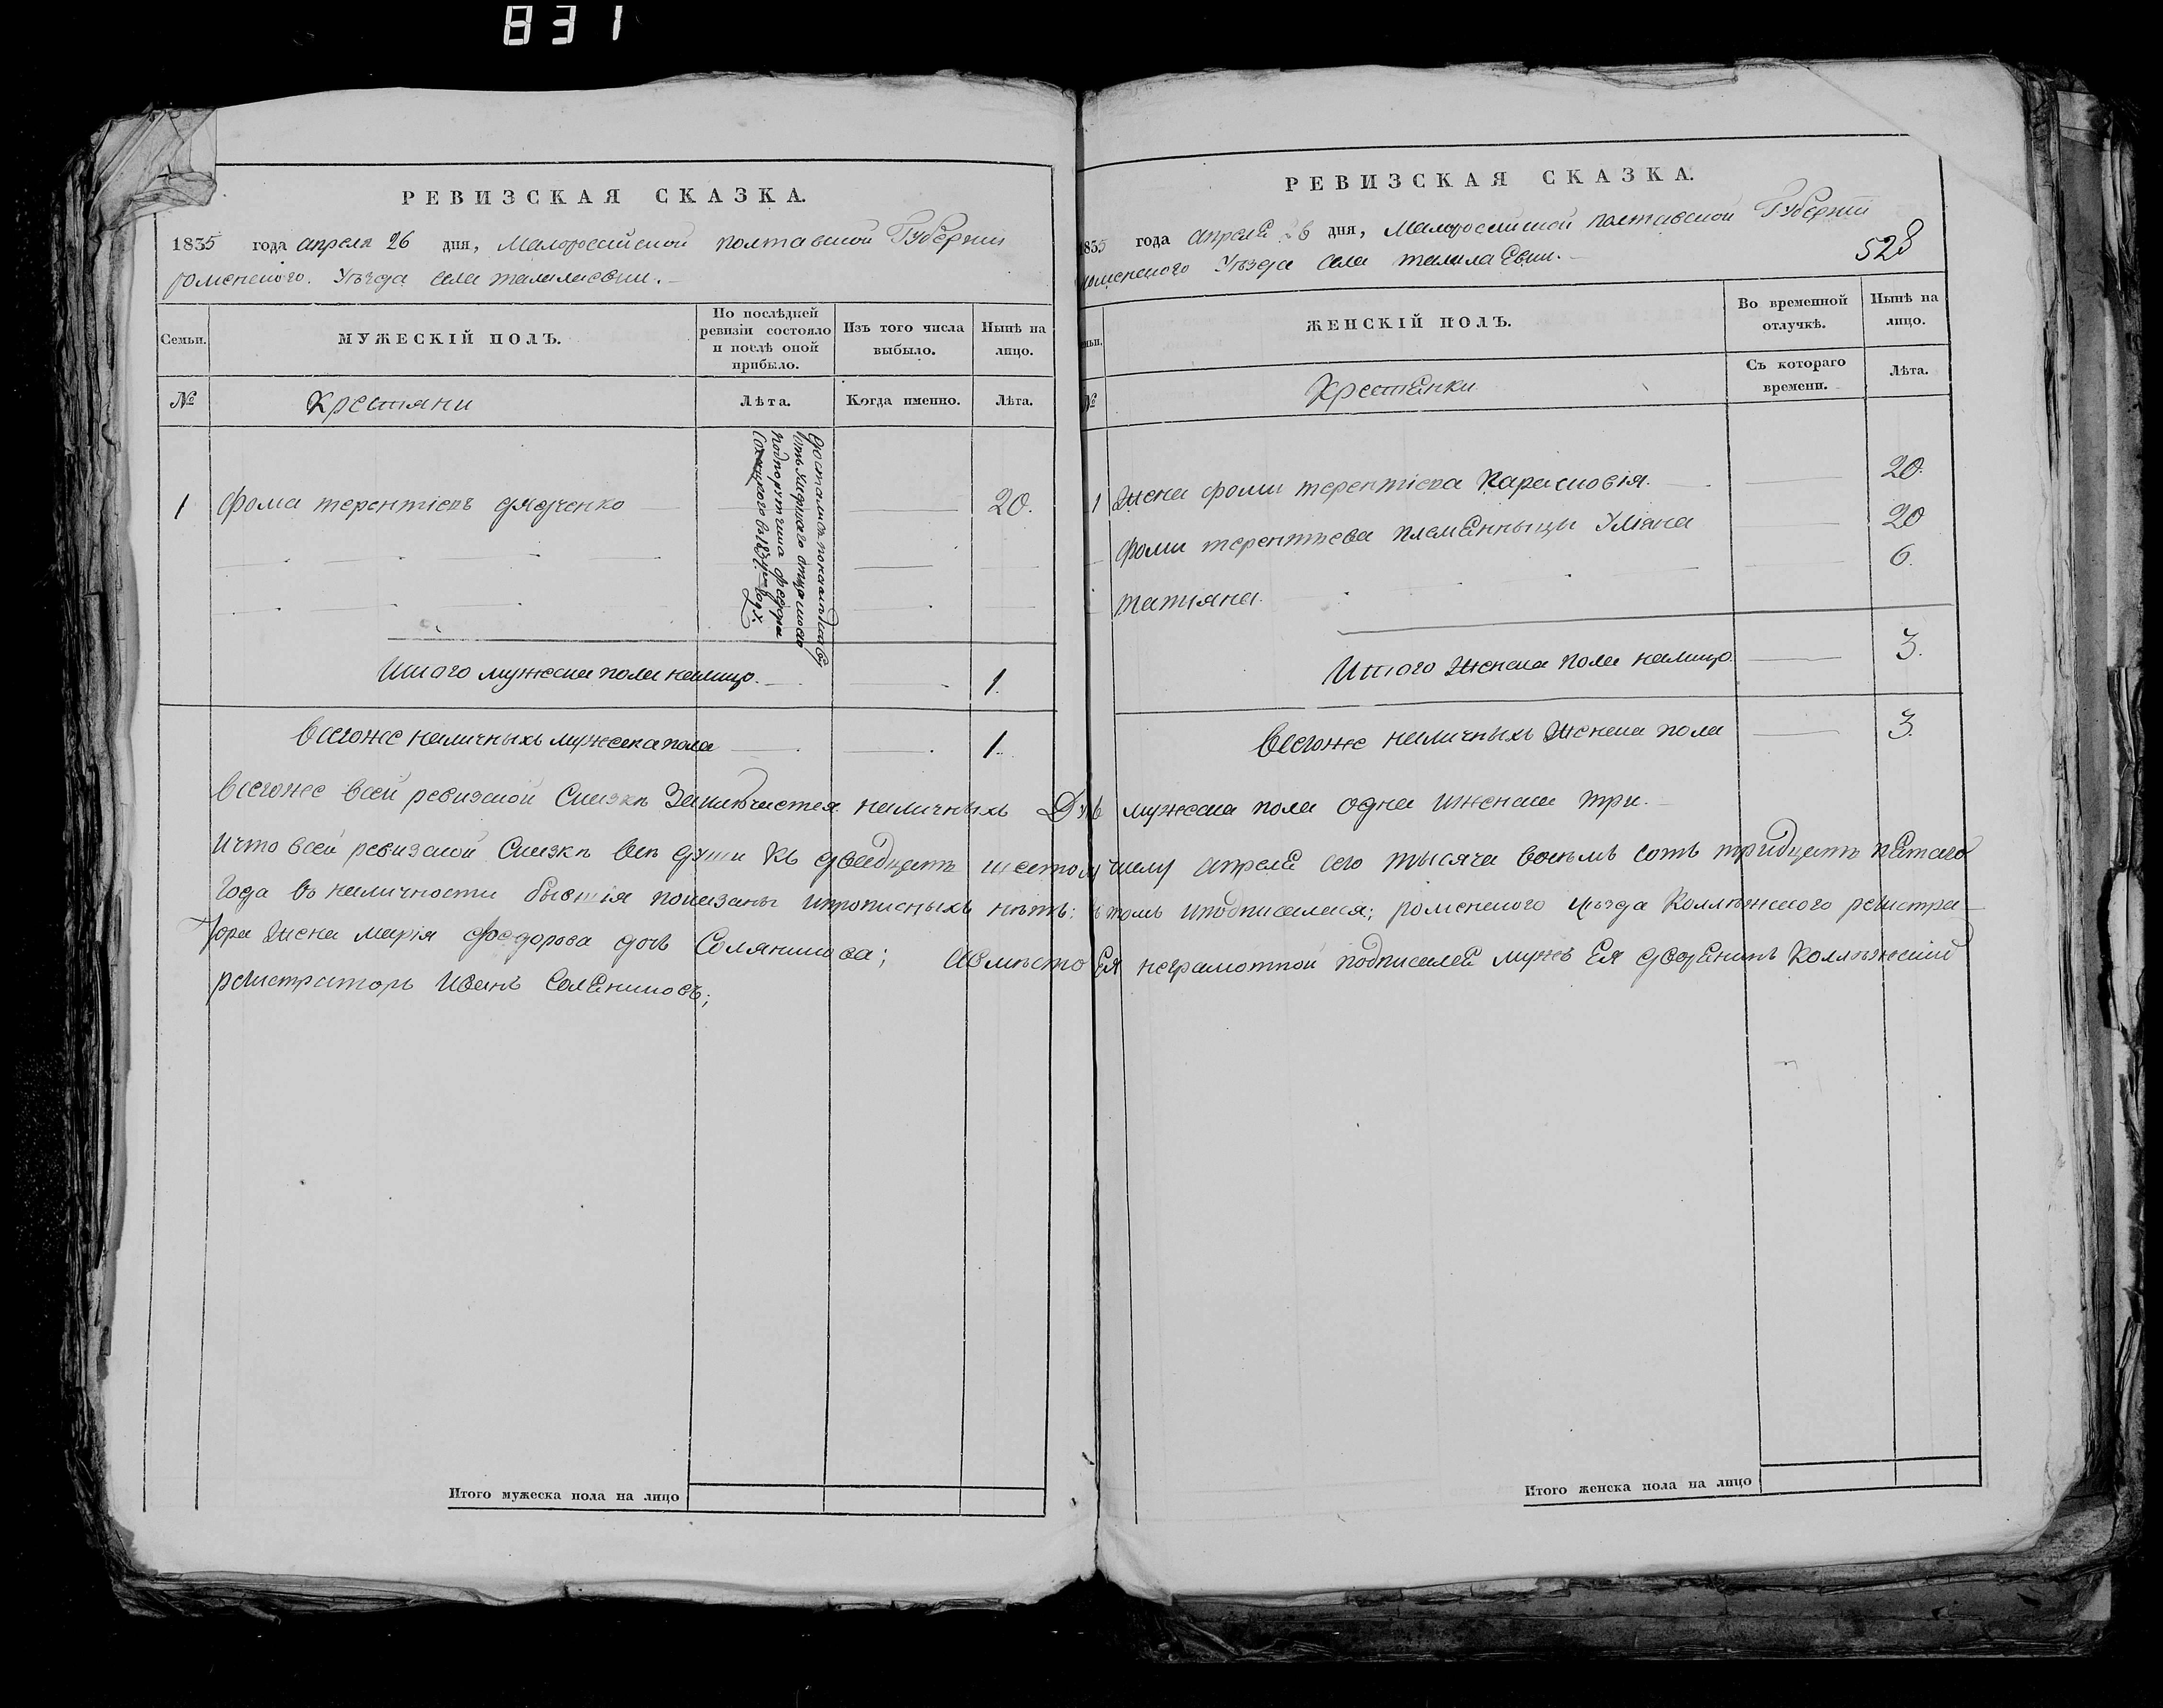 831
РЕВИЗСКАЯ СКАЗКА.
1835 года апреля 26 дня, Малоросийской полтавской Губернии
роменского. Уезда села талалаевки.
Семьи.
МУЖЕСКІЙ ПОЛЪ.
По послѣдней ревизіи состояло и послѣ оной прибыло.
Изъ того числа выбыло.
Нынѣ на лицо.
№
Крестяни
Лѣта.
Когда именно.
Лѣта.
Подпорутчика Федора
1 Фома терентіевъ дядченко 20.
Итого мужеска пола налицо. 1.
Всегоже наличныхъ мужеска пола 1.
РЕВИЗСКАЯ СКАЗКА.
1835 года апреля 26 дня, Малоросийской полтавской Губернии
528
роменского Уезда села талалаевки.
ЖЕНСКІЙ ПОЛЪ.
Во временной отлучкѣ.
Нынѣ на лицо.
№
Крестянки
Съ котораго времени.
Лѣта.
1 Жена фоми терентіева Парасковія. 20.
фоми терентьева племянныци Уляна 20
татіяна. 6.
Итого женска пола налицо 3.
Всегоже наличныхъ женска пола 3.
Всегоже всей ревизской Сказкѣ Заключается наличныхъ Душъ мужеска пола одна иженска три.
Ичто всей ревизской Сказкѣ Всѣ души Къ двадцать шестому числу апреля сего тысяча восемъ сотъ тридцать пятаго
Года въ наличности бывшія показаны ипрописныхъ нетъ: в томъ иподписалася; роменского уезда Коллѣжского регистра
тора жена марія федорова дочъ Соляникова; Авместо Ея неграмотной подписался мужъ Ея дворянинъ Коллѣжский
регистраторъ Иванъ Соляниковъ;
Итого мужеска пола на лицо
Итого женска пола на лицо